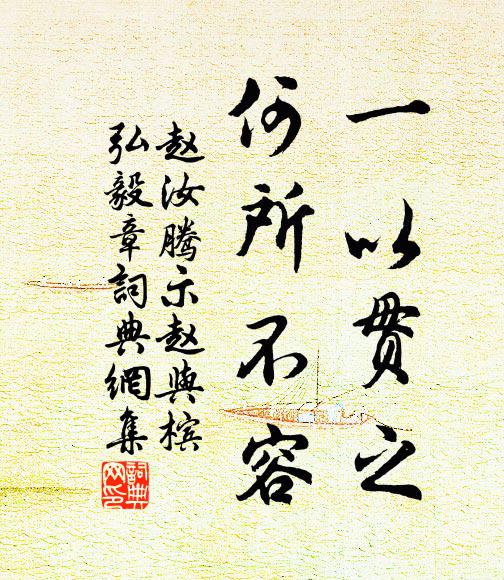 一以贯之
何所不容
赵汝腾示赵与槟
弘毅章词典网集
词典网印